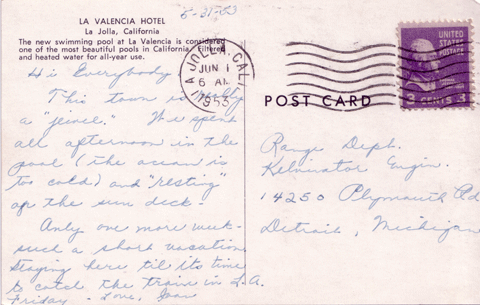 5-31-53
LA VALENCIA HOTEL
La Jolla, California
The new swimming pool at La Valencia is considered
one of the most beautiful pools in California. Filtered
and heated water for all-year use.
LA JOLLA, CALIF.
JUN 1
6 AM
1953
UNITED
STATES
POSTAGE
3 CENTS 3
POST CARD
Hi Everybody
This town is really
a "jewel." We spend
all afternoon in the
pool (the ocean is
too cold) and "resting"
on the sun deck-
Only one more week-
such a short vacation
Staying here, til its time
to catch the train in L.A.
Friday - Love, Joan
Range Dept.
Kelvinator Engin.
14250 Plymouth Rd
Detroit, Michigan